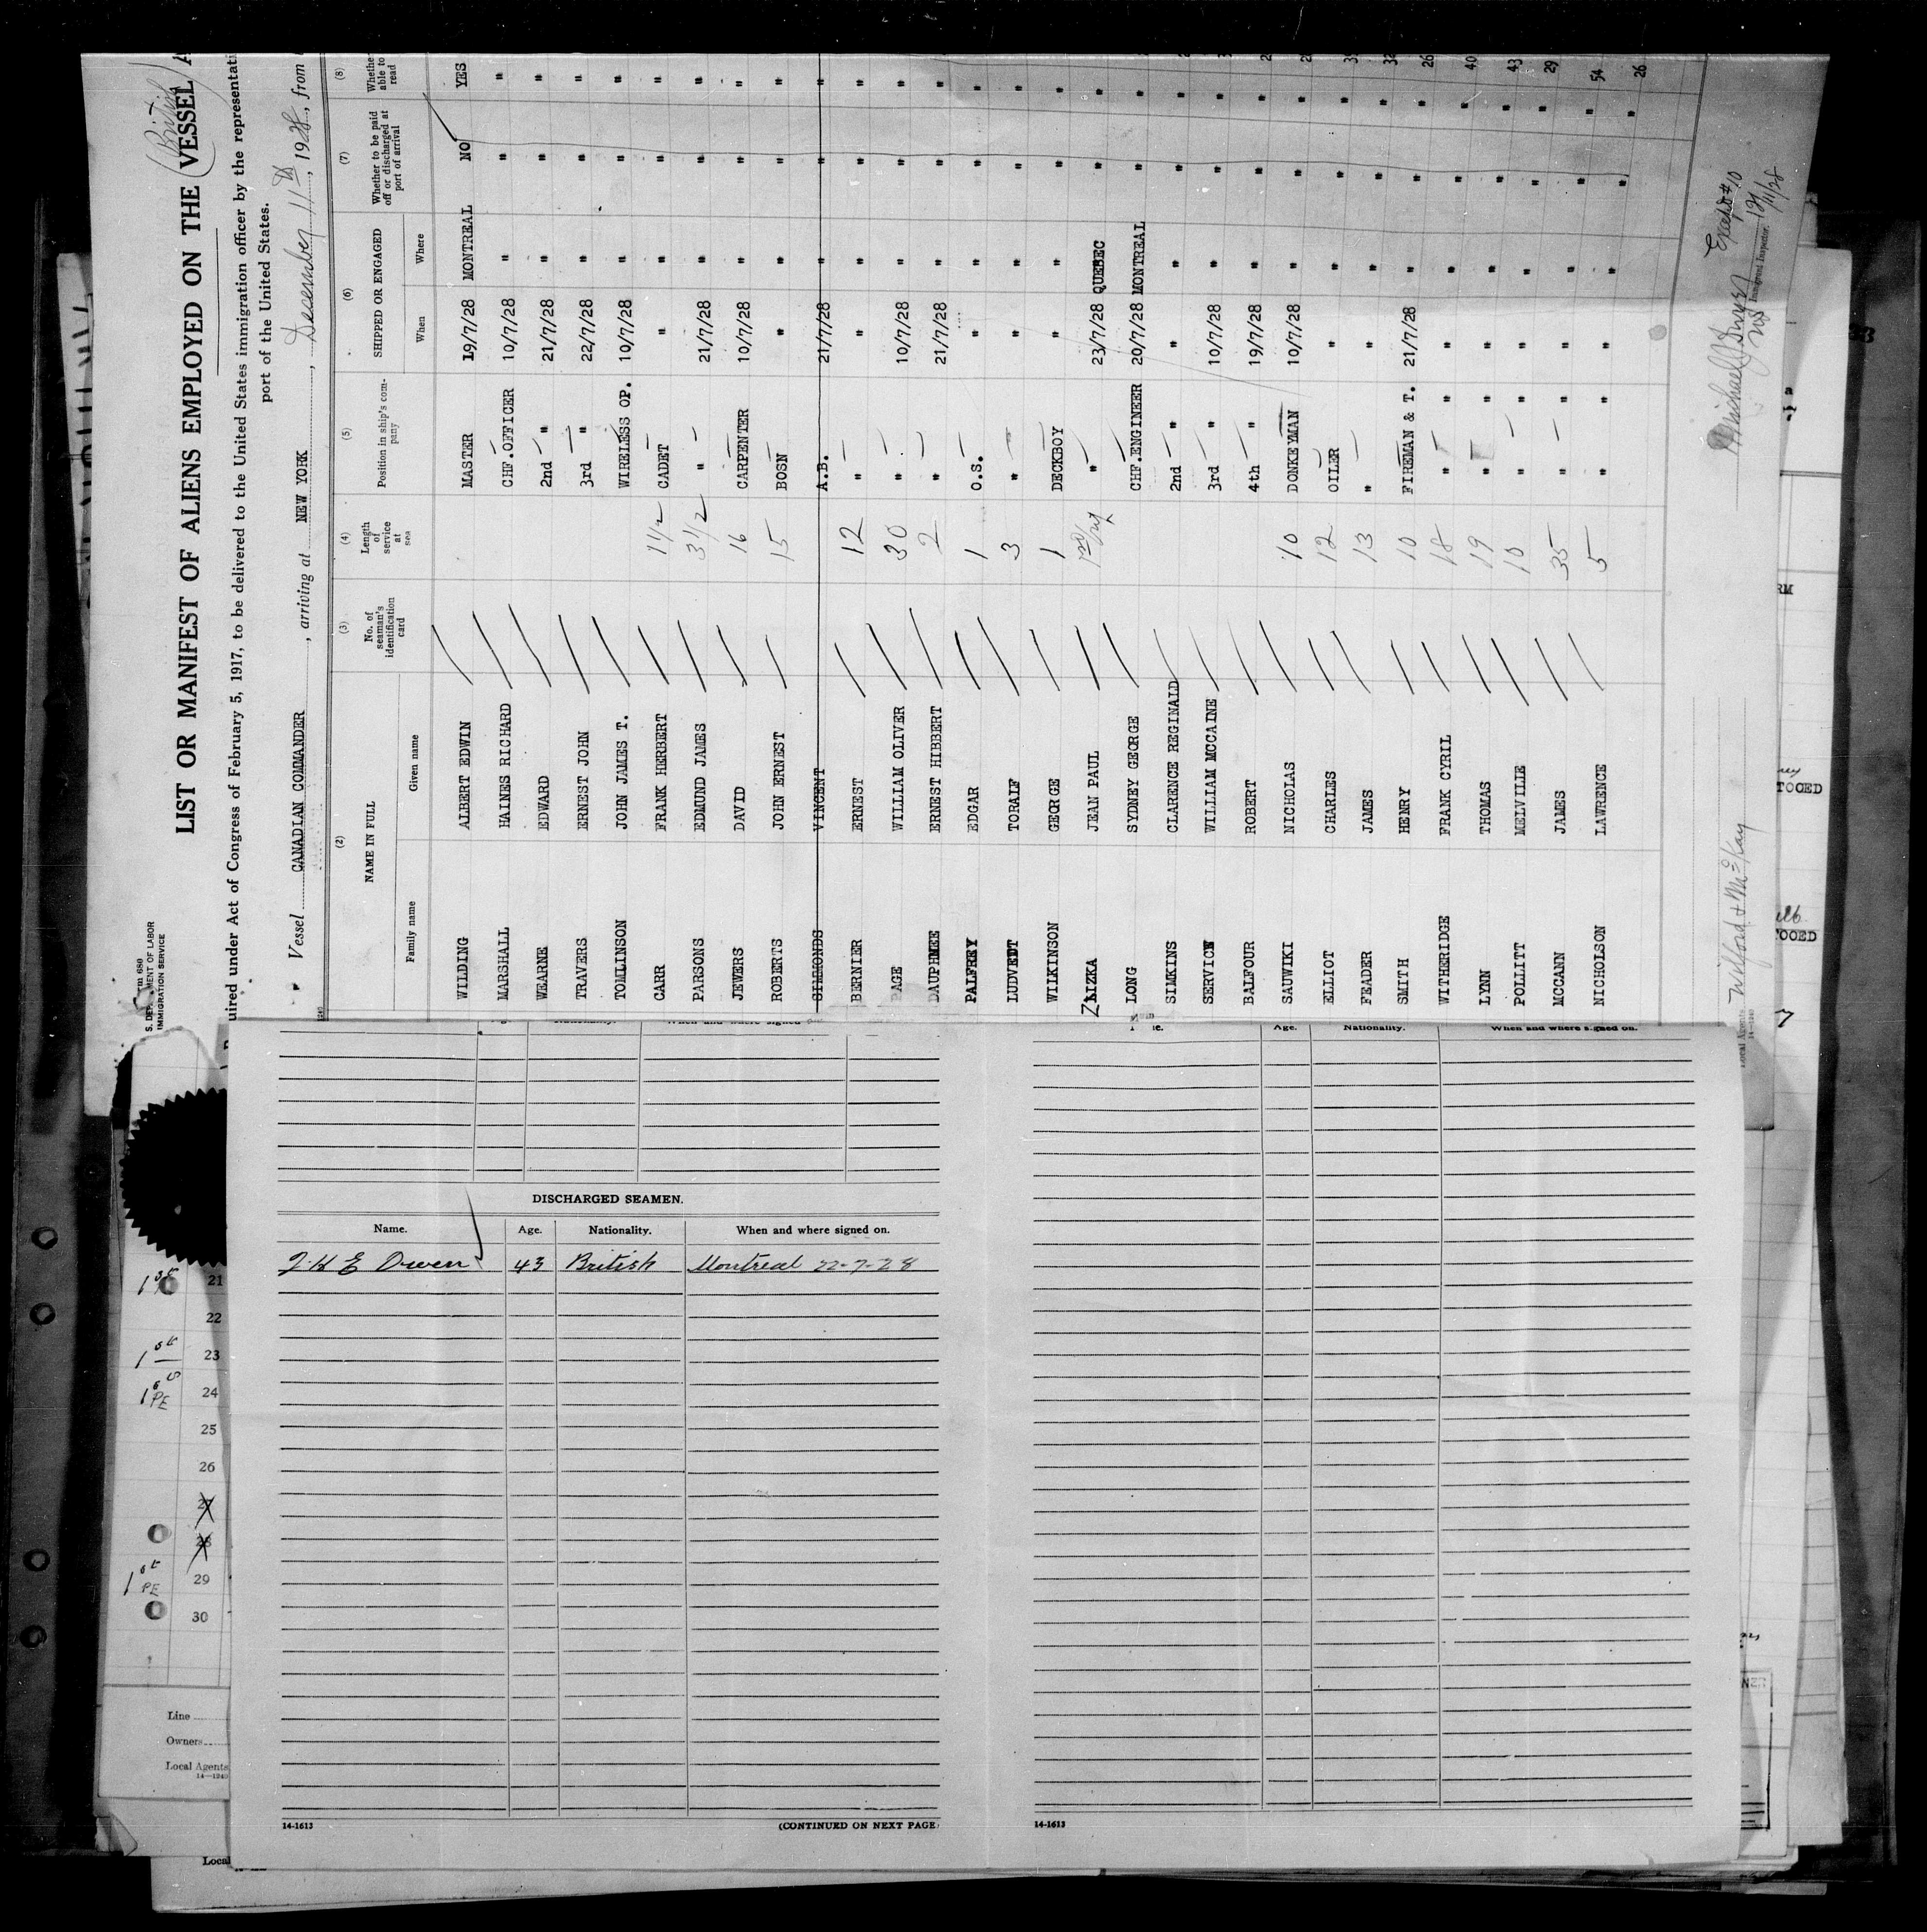 S. DEPARTMENT OF LABOR
IMMIGRATION SERVICE
(British)
LIST OR MANIFEST OF ALIENS EMPLOYED ON THE VESSEL A
uired under Act of Congress of February 5, 1917, to be delivered to the United States immigration officer by the representati
port of the United States.
Vessel CANADIAN COMMANDER, arriving at NEW YORK, December 11th, 1928, from
(2) (3) (4) (5) (6) (7) (8)
NAME IN FULL No. of seaman's identification card Length of service at sea Position in ship's company SHIPPED OR ENGAGED Whether to be paid off or discharged at port of arrival Whether able to read
Family name Given name When Where
WILDING ALBERT EDWIN MASTER 19/7/28 MONTREAL NO YES
MARSHALL HAINES RICHARD CHF.OFFICER 10/7/28 " " "
WEARNE EDWARD 2nd " 21/7/28 " " "
TRAVERS ERNEST JOHN 3rd " 22/7/28 " " "
TOMLINSON JOHN JAMES T. WIRELESS OP. 10/7/28 " " "
CARR FRANK HERBERT 1 1/2 CADET " " " "
PARSONS EDMUND JAMES 3 1/2 " 21/7/28 " " "
JEWERS DAVID 16 CARPENTER 10/7/28 " " "
ROBERTS JOHN ERNEST 15 BOSN " " " "
SIMMONDS VINCENT A.B. 21/7/28 " " "
BERNIER ERNEST 12 " " " " "
PAGE WILLIAM OLIVER 30 " 10/7/28 " " "
DAUPHNEE ERNEST HIBBERT 2 " 21/7/28 " " "
PALFREY EDGAR 1 O.S. " " " "
LUDVEDT TORALF 3 " " " " "
WILKINSON GEORGE 1 DECKBOY " " " "
ZIZKA JEAN PAUL " 23/7/28 QUEBEC " "
LONG SYDNEY GEORGE CHF.ENGINEER 20/7/28 MONTREAL " "
SIMKINS CLARENCE REGINALD 2nd " " " " "
SERVICE WILLIAM MCCAINE 3rd " 10/7/28 " " "
BALFOUR ROBERT 4th " 19/7/28 " " "
SAUWIKI NICHOLAS 10 DONKEYMAN 10/7/28 " " "
ELLIOT CHARLES 12 OILER " " " "
FEADER JAMES 13 " " " " "
SMITH HENRY 10 FIREMAN & T. 21/7/28 " " "
WITHERIDGE FRANK CYRIL 18 " " " " " "
LYNN THOMAS 19 " " " " " "
POLLITT MELVILLE 10 " " " " " "
MCCANN JAMES 35 " " " " " "
NICHOLSON LAWRENCE 5 " " " " " "
Except #10
12/11/28
Immigrant Inspector.
Local Agents
14-1240
Age. Nationality. When and where signed on.
DISCHARGED SEAMEN.
Name. Age. Nationality. When and where signed on.
J. H E Owen 43 British Montreal 22-7-28
14-1613
(CONTINUED ON NEXT PAGE
14-1613
21
22
23
24
25
26
27
28
29
30
Line
Owners
Local Agents
14-1240
Local